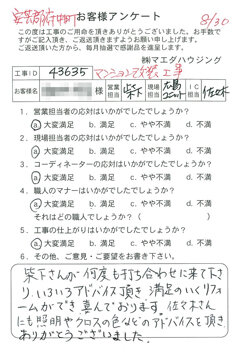 安芸郡府中町 お客様アンケート 8/30
この度は工事のご用命を頂きありがとうございました。お手数で
すがご記入頂き、ご返送頂きますようお願い申し上げます。
ご返送頂いた方から、毎月抽選で感謝品を進呈します。
㈱マエダハウジング
工事ID 43635 マンション改装工事
お客様名 様 営業担当 柴下 現場担当 IC担当 佐々木
1. 営業担当者の応対はいかがでしたでしょうか?
a 大変満足 b. 満足 c. やや不満 d. 不満
2. 現場担当者の応対はいかがでしたでしょうか?
a 大変満足 b. 満足 c. やや不満 d. 不満
3. コーディネーターの応対はいかがでしたでしょうか?
a 大変満足 b. 満足 c. やや不満 d. 不満
4. 職人のマナーはいかがでしたでしょうか?
a 大変満足 b. 満足 c. やや不満 d. 不満
それはどの職人でしょうか?( )
5. 工事の仕上がりはいかがでしたでしょうか?
a 大変満足 b. 満足 c. やや不満 d. 不満
6. その他、ご意見・ご要望をお書き下さい。
柴下さんが何度も打ち合わせに来て下さ
り、いろいろアドバイス頂き満足のいくリフォ
ームができ喜んでおります。佐々木さん
にも照明やクロスの色などのアドバイスを頂き
ありがとうございました。